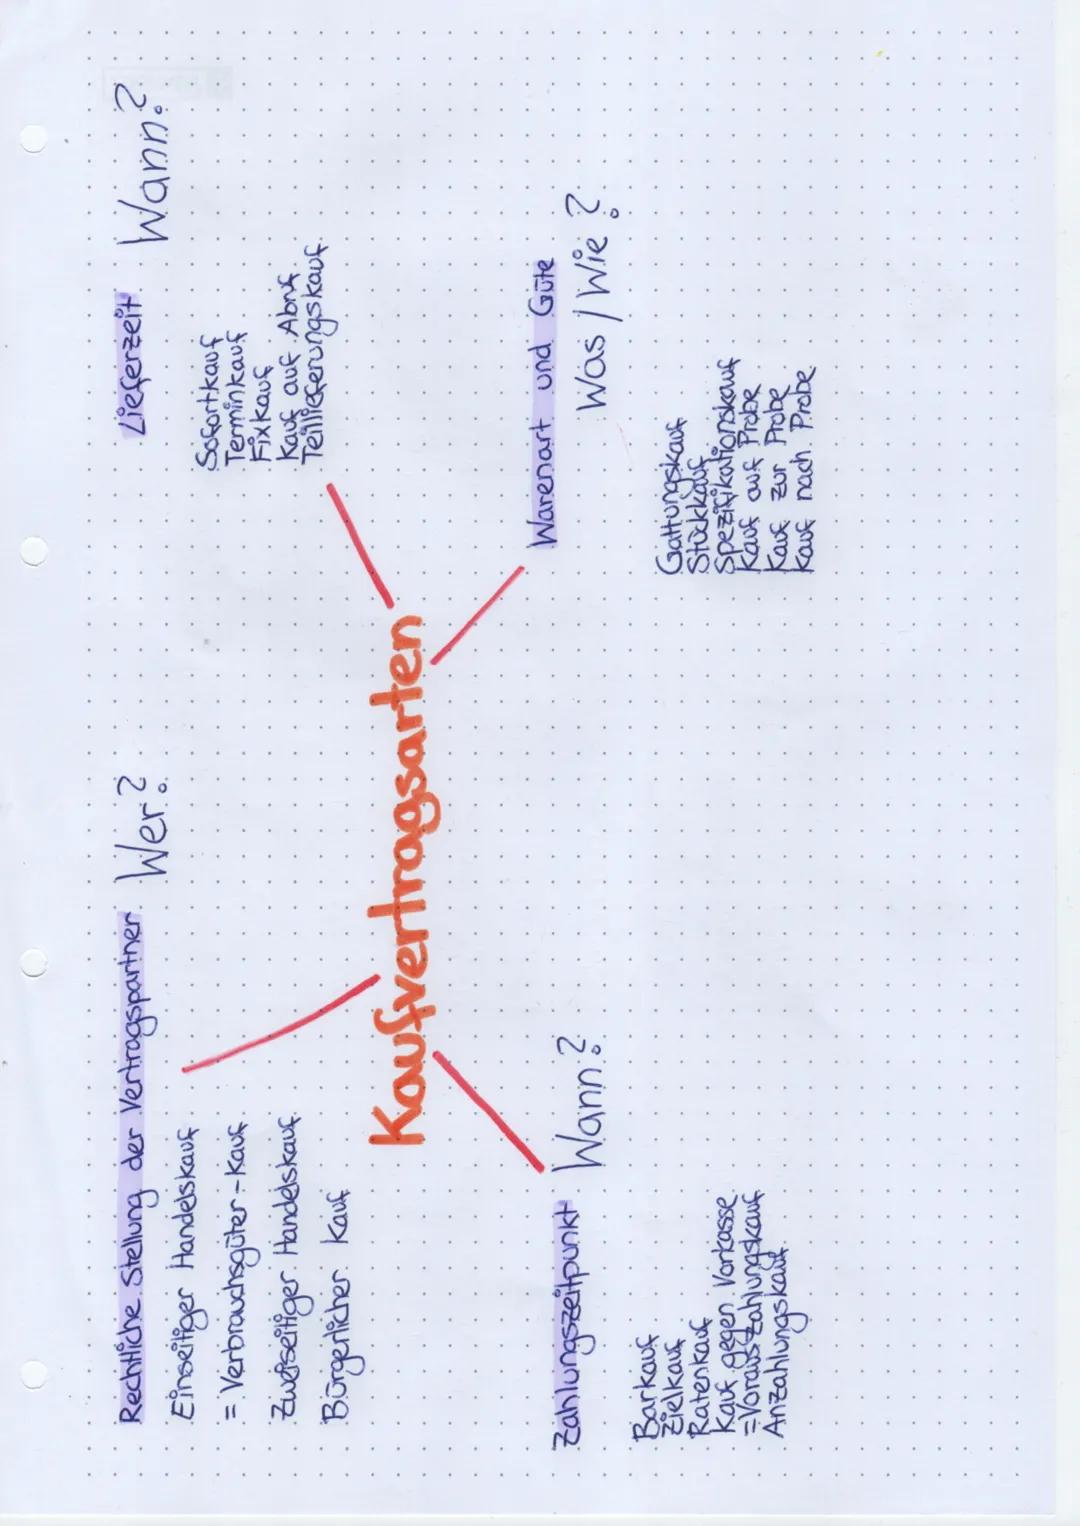 Rechtliche Stellung der Vertragspartner Wer?
Einseitiger Handelskauf
= Verbrauchsgüter-Kauf
Zweiseitiger Handelskauf
Bürgerlicher Kauf
Lieferzeit Wann?
Sofortkauf
Terminkauf
Fixkauf
Kauf auf Abruf
Teillieferungskauf
Kaufvertragsarten
Zahlungszeitpunkt Wann?
Barkauf
Zielkauf
Ratenkauf
Kauf gegen Vorkasse
=Vorauszahlungskauf
Anzahlungskauf
Warenart und Güte
Was / Wie?
Gattungskauf
Stückkauf
Spezifikationskauf
Kauf auf Probe
Kauf zur Probe
Kauf nach Probe